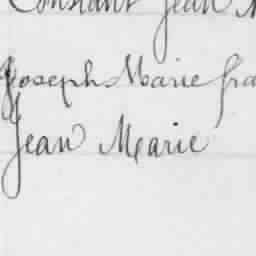 Constant Jean
Joseph Marie fra
Jean Marie